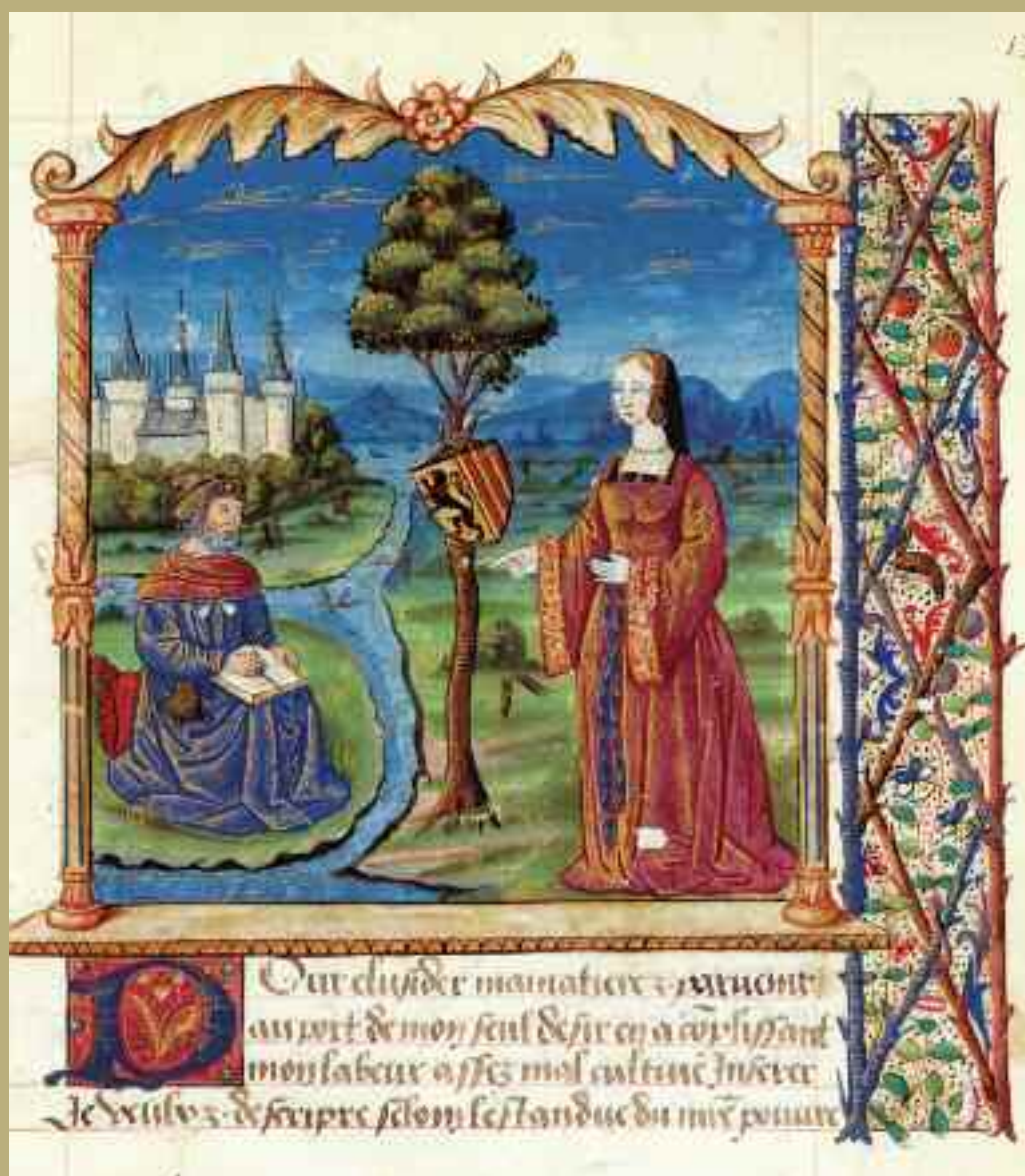 Pour elusider ma matiere & paruenir
au port de mon seul desir en acōplissant
mon labeur assez mal cultiue Inserer
Je veulx & descripre selon lestandue du